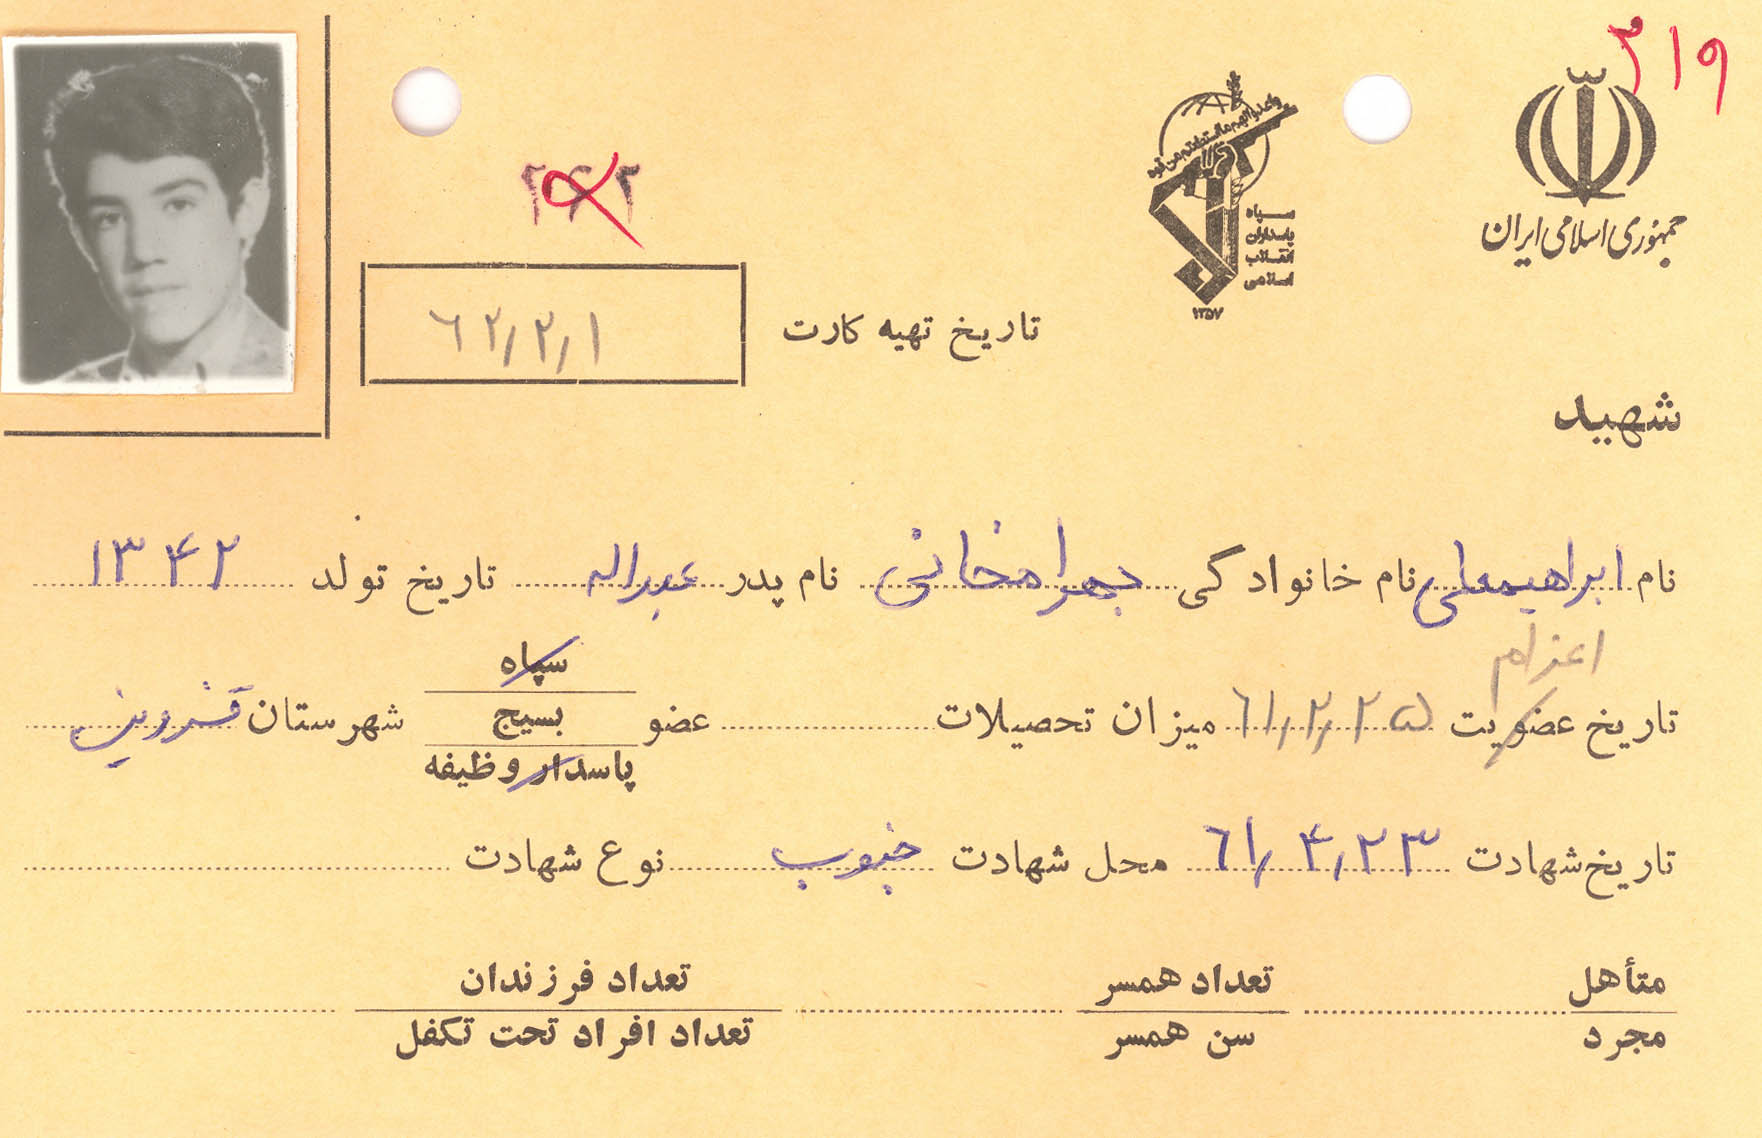 ۳۱۹
جمهوری اسلامی ایران
واعدوا لهم ما استطعتم من قوه
سپاه
پاسداران
انقلاب
اسلامی
۱۳۵۷
تاریخ تهیه کارت ۶۲/۲/۱
شهید
نام ابراهیمعلی نام خانوادگی بهرامخانی نام پدر عبداله تاریخ تولد ۱۳۴۲
اعزام
تاریخ عضویت ۶۱/۲/۲۵ میزان تحصیلات عضو سپاه بسیج پاسدار وظیفه شهرستان قزوین
تاریخ شهادت ۶۱/۴/۲۳ محل شهادت جنوب نوع شهادت
متأهل تعداد همسر تعداد فرزندان
مجرد سن همسر تعداد افراد تحت تکفل